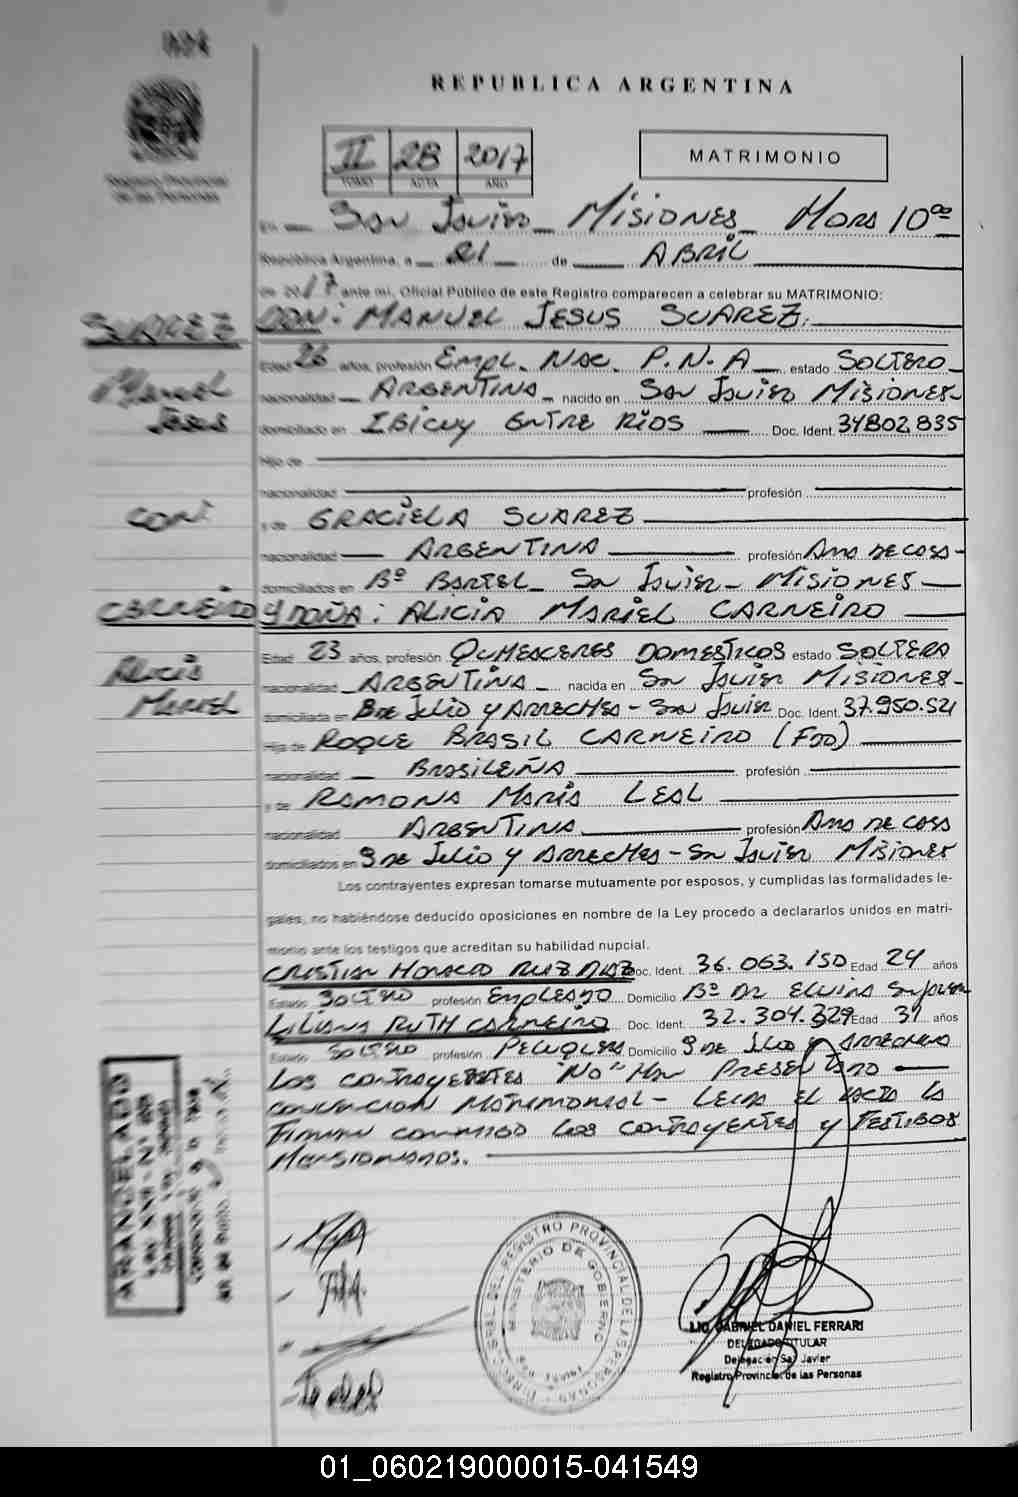 REPUBLICA ARGENTINA
II 28 2017
TOMO ACTA AÑO
MATRIMONIO
Registro Provincial
de las Personas
En San Javier Misiones Hors 10ºº
República Argentina, a 21 de ABRIL
de 2017 ante mi, Oficial Público de este Registro comparecen a celebrar su MATRIMONIO:
SUAREZ
DON: MANUEL JESUS SUAREZ.
Edad 26 años, profesión Empl. Nac. P.N.A estado SOLTERO
Manuel
nacionalidad ARGENTINA nacido en San Javier Misiones
Jesus
domiciliado en IBICUY ENTRE RIOS Doc. Ident. 34802835
Hijo de
nacionalidad profesión
CON:
y de GRACIELA SUAREZ
nacionalidad ARGENTINA profesión Ama de casa
domiciliados en Bº BARTEL San Javier Misiones
CARNEIRO
Y DOÑA: ALICIA MARIEL CARNEIRO
Edad 23 años, profesión QUHESCERES DOMESTICOS estado SOLTERA
Alicia
nacionalidad ARGENTINA nacida en San Javier Misiones
Mariel
domiciliada en 8 de Julio y ARRECHEA - San Javier Doc. Ident. 37.950.521
Hija de ROQUE BRASIL CARNEIRO (FDO)
nacionalidad BRASILEÑA profesión
y de RAMONA MARIA LEAL
nacionalidad ARGENTINA profesión Ama de casa
domiciliados en 9 de Julio y ARRECHEA - San Javier Misiones
Los contrayentes expresan tomarse mutuamente por esposos, y cumplidas las formalidades le-
gales, no habiéndose deducido oposiciones en nombre de la Ley procedo a declararlos unidos en matri-
monio ante los testigos que acreditan su habilidad nupcial.
CRISTIAN HORACIO RUIZ DIAZ Doc. Ident. 36.063.150 Edad 24 años
Estado SOLTERO profesión EMPLEADO Domicilio Bº Dr Elvira
LILIANA RUTH CARNEIRO Doc. Ident. 32.304.329 Edad 31 años
Estado SOLTERO profesión PELUQUERA Domicilio 9 de Julio y ARRECHEA
Los contrayentes "No" Han Presentado
convencion Matrimonial - Leida el acta la
Firman conmigo los contrayentes y Testigos
Mensionados.
ARANCELADO
DIREC. GRAL. DEL REGISTRO PROVINCIAL DE LAS PERSONAS
MINISTERIO DE GOBIERNO
LIC. GABRIEL DANIEL FERRARI
DELEGADO TITULAR
Delegación San Javier
Registro Provincial de las Personas
01_060219000015-041549